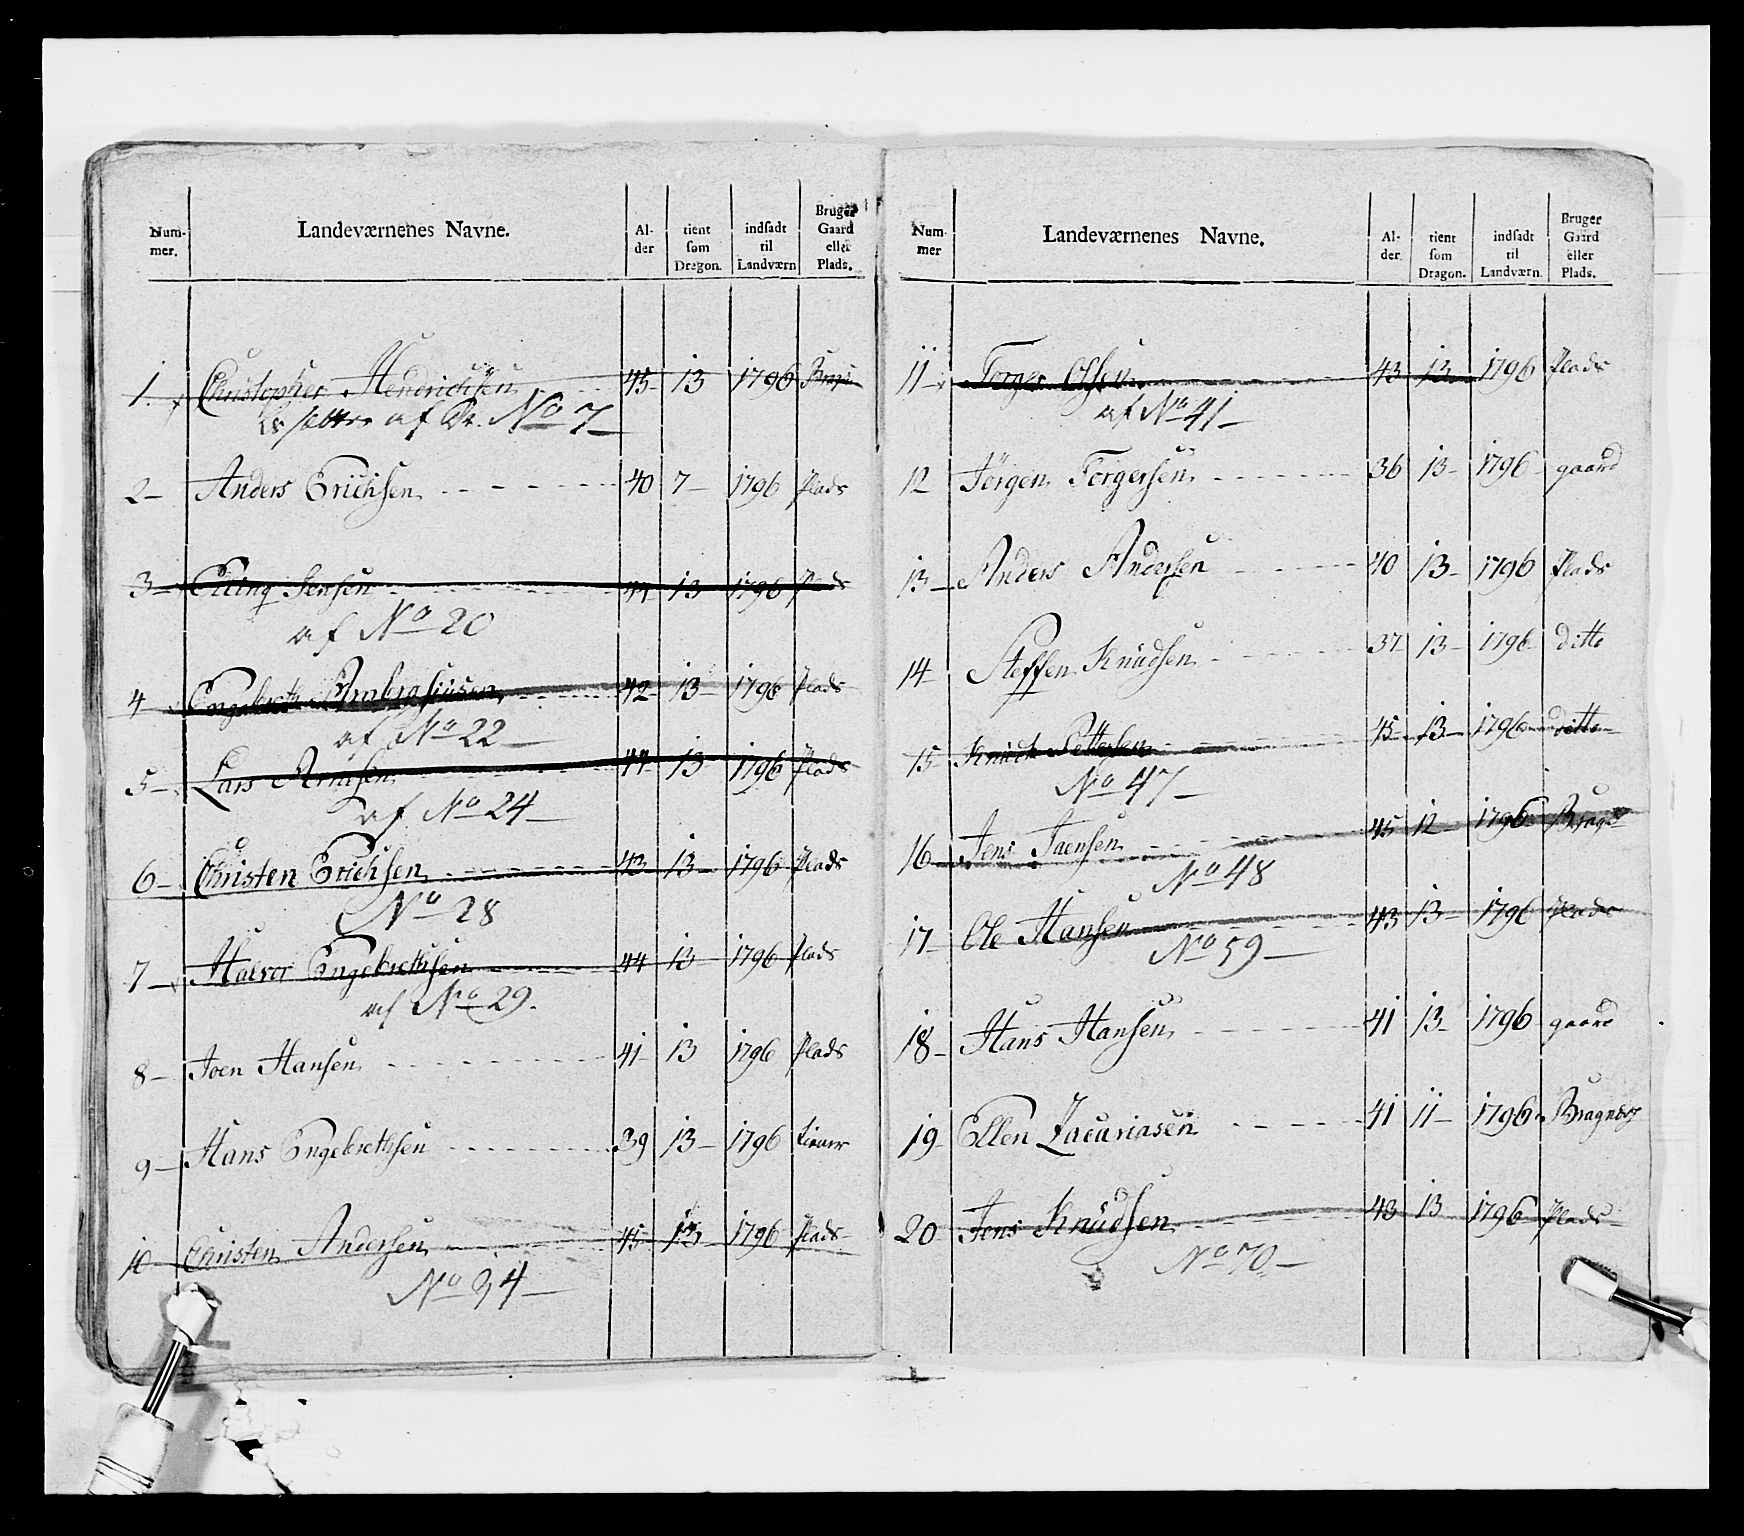 Num- mer. Landeværnenes Navne. Al- der tient som Dragon. indsadt til Landværn Bruger Gaard eller Plads.
1. Christopher Hendrichsen 45 13 1796
af No 7
2 Anders Erichsen 40 7 1796 Plads
3 Elling Jensen 44 13 1796 Plads
af No 20
4 42 13 1796 Plads
af No 22
5 Lars Arnesen 44 13 1796 Plads
af No 24
6 Christen Erichsen 43 13 1796 Plads
No 28
7 Halvor Engebrethsen 44 13 1796 Plads
af No 29.
8 Joen Hansen 41 13 1796 Plads
9 Hans Engebrethsen 39 13 1796
10 Christen Andersen 45 13 1796 Plads
No 34
Num- mer Landeværnenes Navne. Al- der. tient som Dragon. indsadt til Landværn. Bruger Gaard eller Plads.
11 Torger Olsen 43 12 1796 Plads
af No 41
12 Jörgen Torgersen 36 13 1796 gaard
13 Anders Andersen 40 13 1796 Plads
14 Steffen Knudsen 37 13 1796 ditto
15 Knud Pettersen 45 13 1796 ditto
No 47
16 Jens Jaensen 45 12 1796
No 48
17 Ole Hansen 43 13 1796 Plads
No 59
18 Hans Hansen 41 13 1796 gaard
19 Ellen Zacariasen 41 11 1796
20 Jens Knudsen 43 13 1796 Plads
No 70